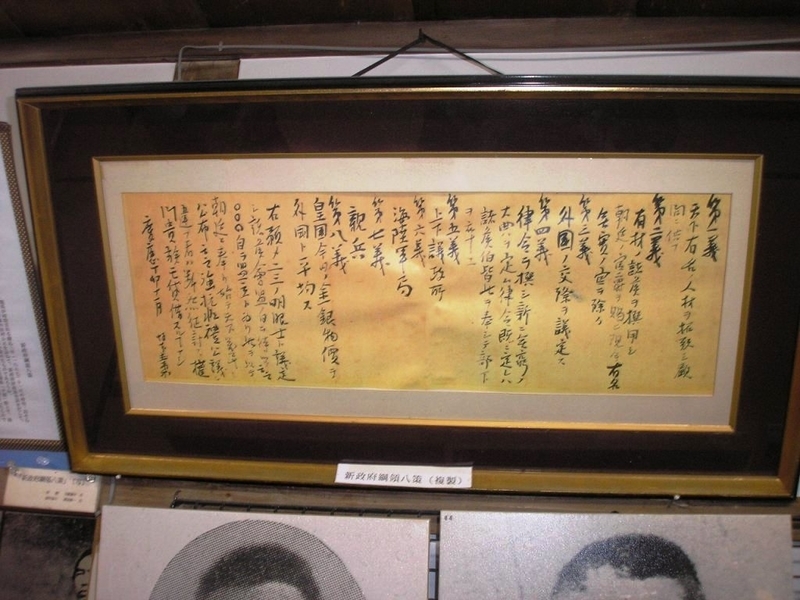 第一義
天下有名ノ人材ヲ招致シ顧
問ニ供フ
第二義
有材ノ諸侯ヲ撰用シ
朝廷ノ官爵ヲ賜ヒ現今有名
無実ノ官ヲ除ク
第三義
外国ノ交際ヲ議定ス
第四義
律令ヲ撰シ新ニ無窮ノ
大典ヲ定ム律令既ニ定レハ
諸侯伯皆此ヲ奉シテ部下
ヲ率ス
第五義
上下議政所
第六義
海陸軍局
第七義
親兵
第八義
皇国今日ノ金銀物價ヲ
外国ト平均ス
右預メ二三ノ明眼士ト議定
シ諸侯會盟ノ日ヲ待ツテ云云
○○○自ラ盟主ト為リ此ヲ以テ
朝廷ニ奉リ始テ天下萬民ニ
公布云云強抗非禮公議ニ
違フ者ハ断然征討ス權
門貴族モ貸借スルコトナシ
慶應丁卯十一月 坂本直柔
新政府綱領八策（複製）